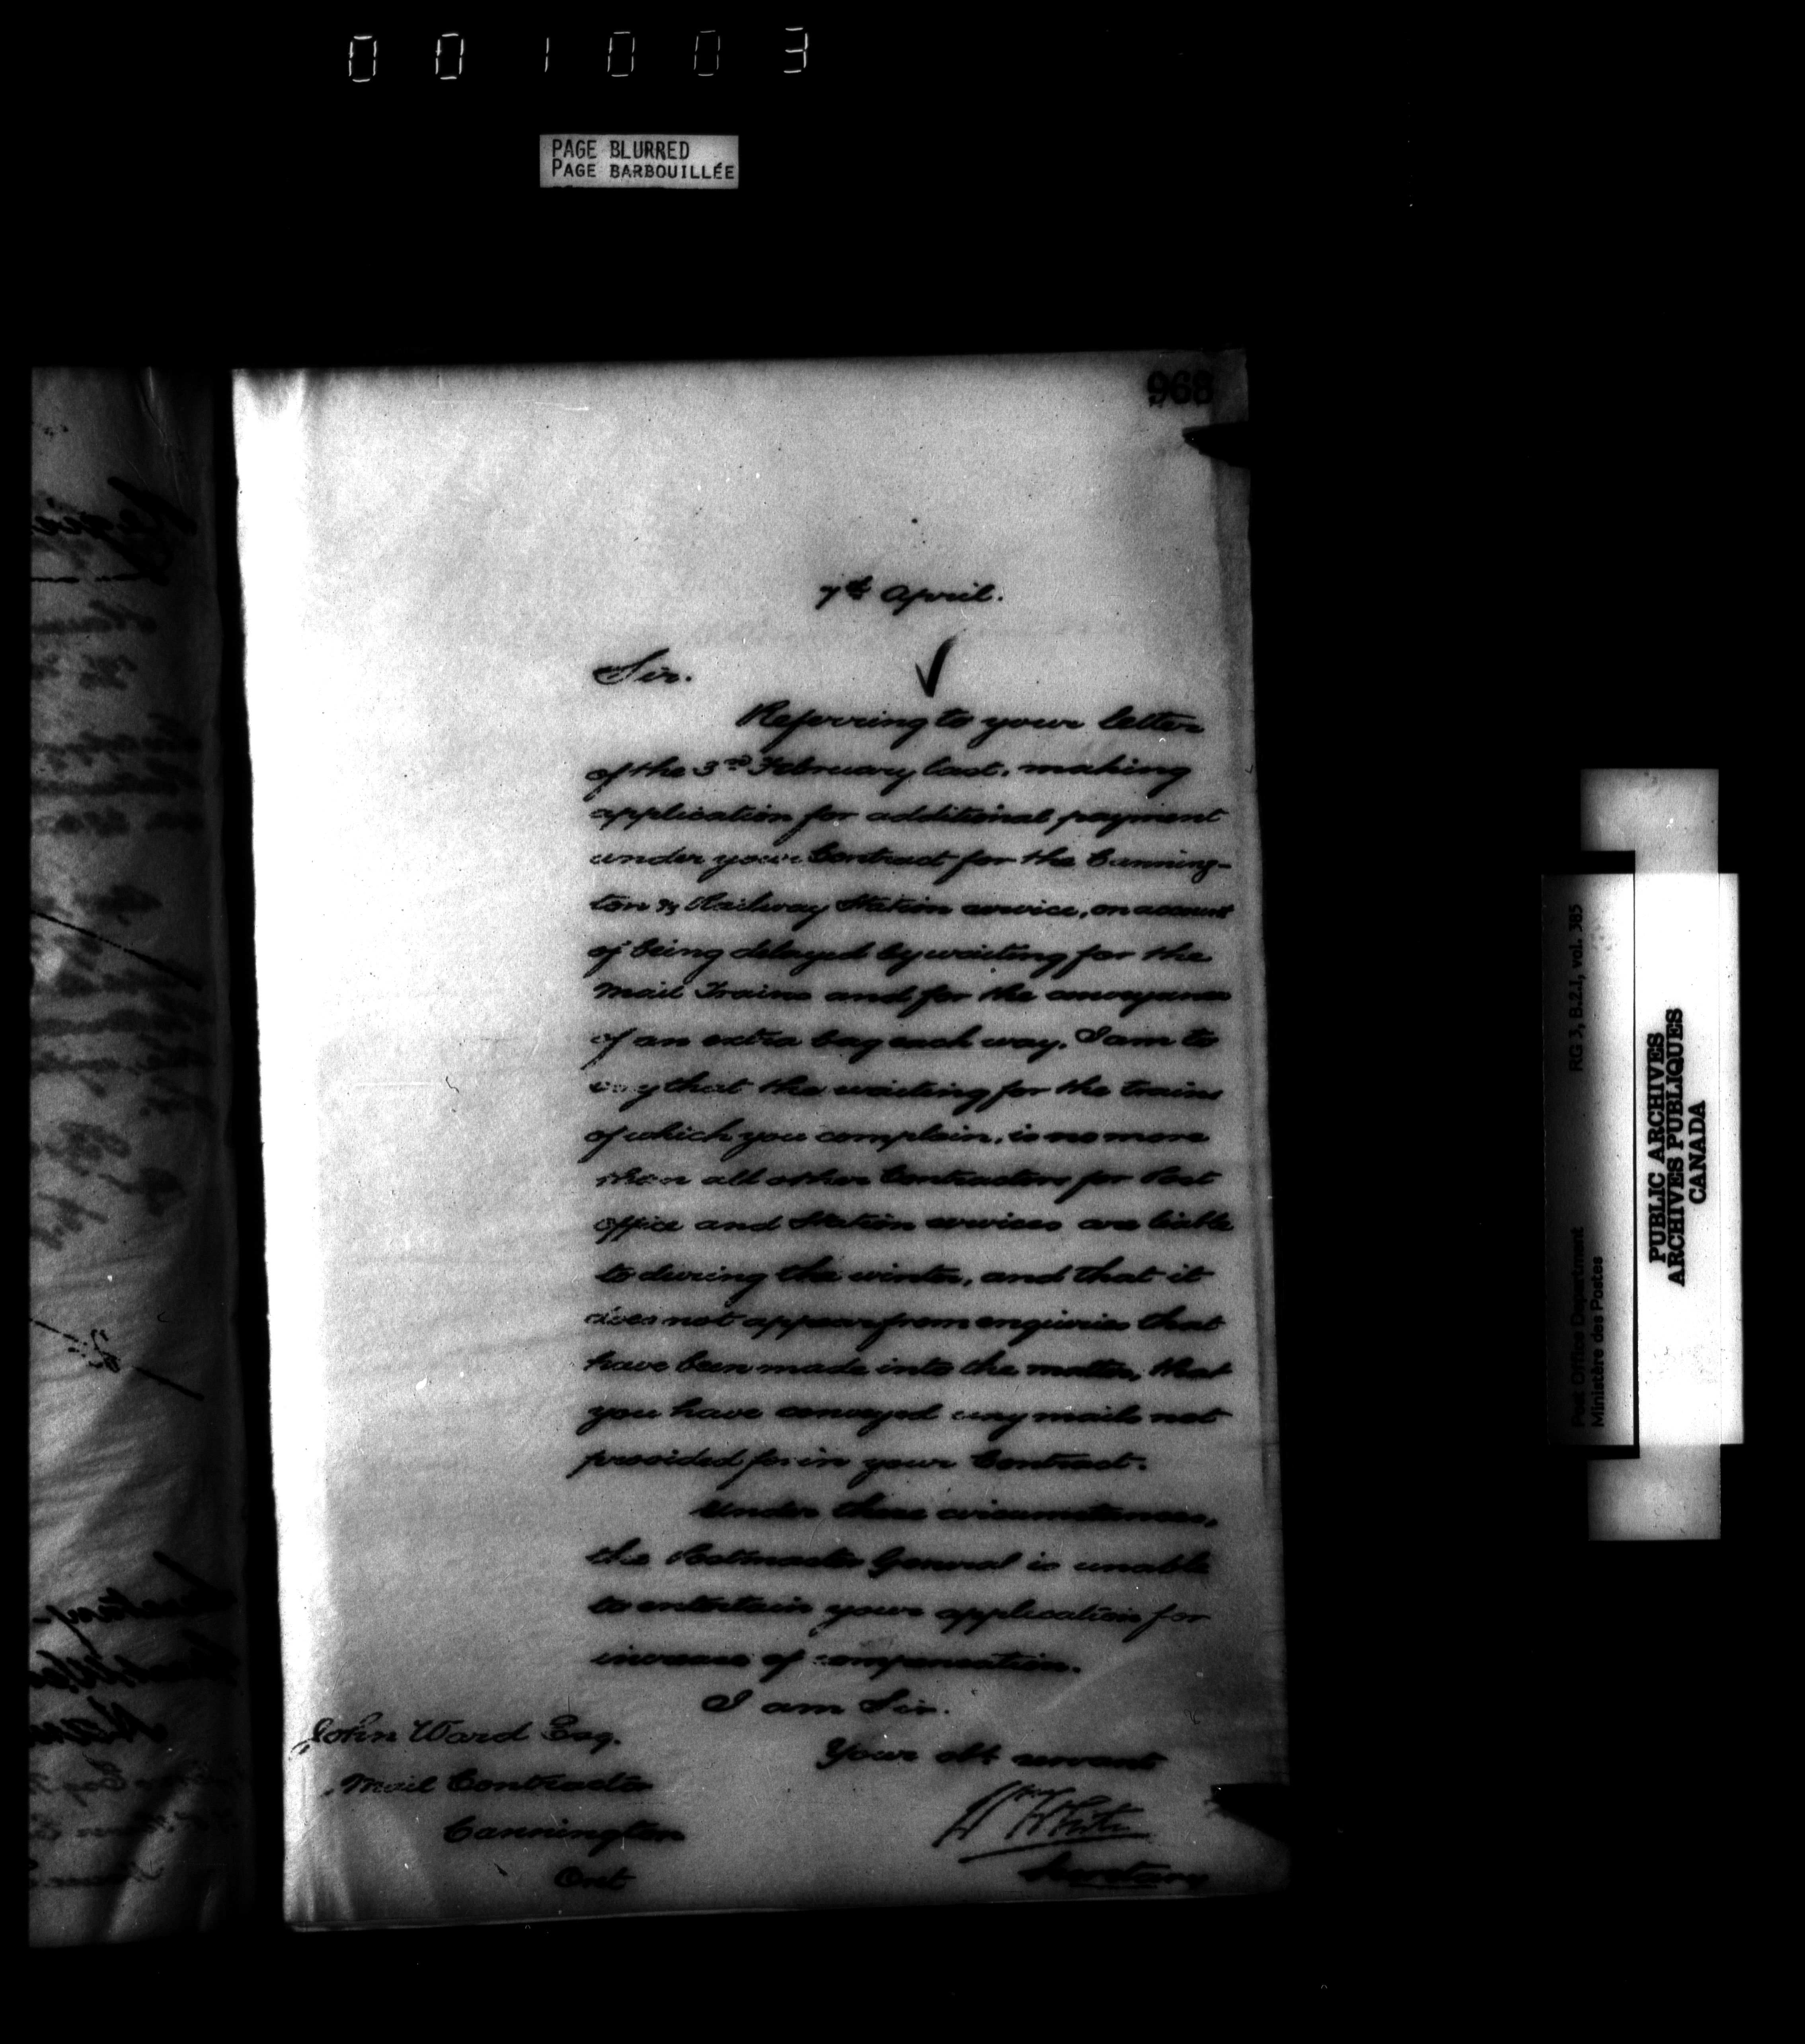 001003
PAGE BLURRED
PAGE BARBOUILLÉE
968
7th April.
Sir.
Referring to your letter
of the 3rd February last, making
application for additional payment
under your Contract for the Canning-
ton & Railway Station service, on account
of being delayed by waiting for the
Mail Trains and for the conveyance
of an extra bag each way. I am to
say that the waiting for the trains
of which you complain, is no more
than all other Contractors for Post
office and Station services are liable
to during the winter, and that it
does not appear from enquiries that
have been made into the matter, that
you have conveyed any mails not
provided for in your Contract.
Under these circumstances,
the Postmaster General is unable
to entertain your application for
increase of compensation.
I am Sir.
Your obt servant
White
Secretary
John Ward Esq.
Mail Contractor
Cannington
Ont
RG 3, B.2.1, vol. 385
Post Office Department
Ministère des Postes
PUBLIC ARCHIVES
ARCHIVES PUBLIQUES
CANADA